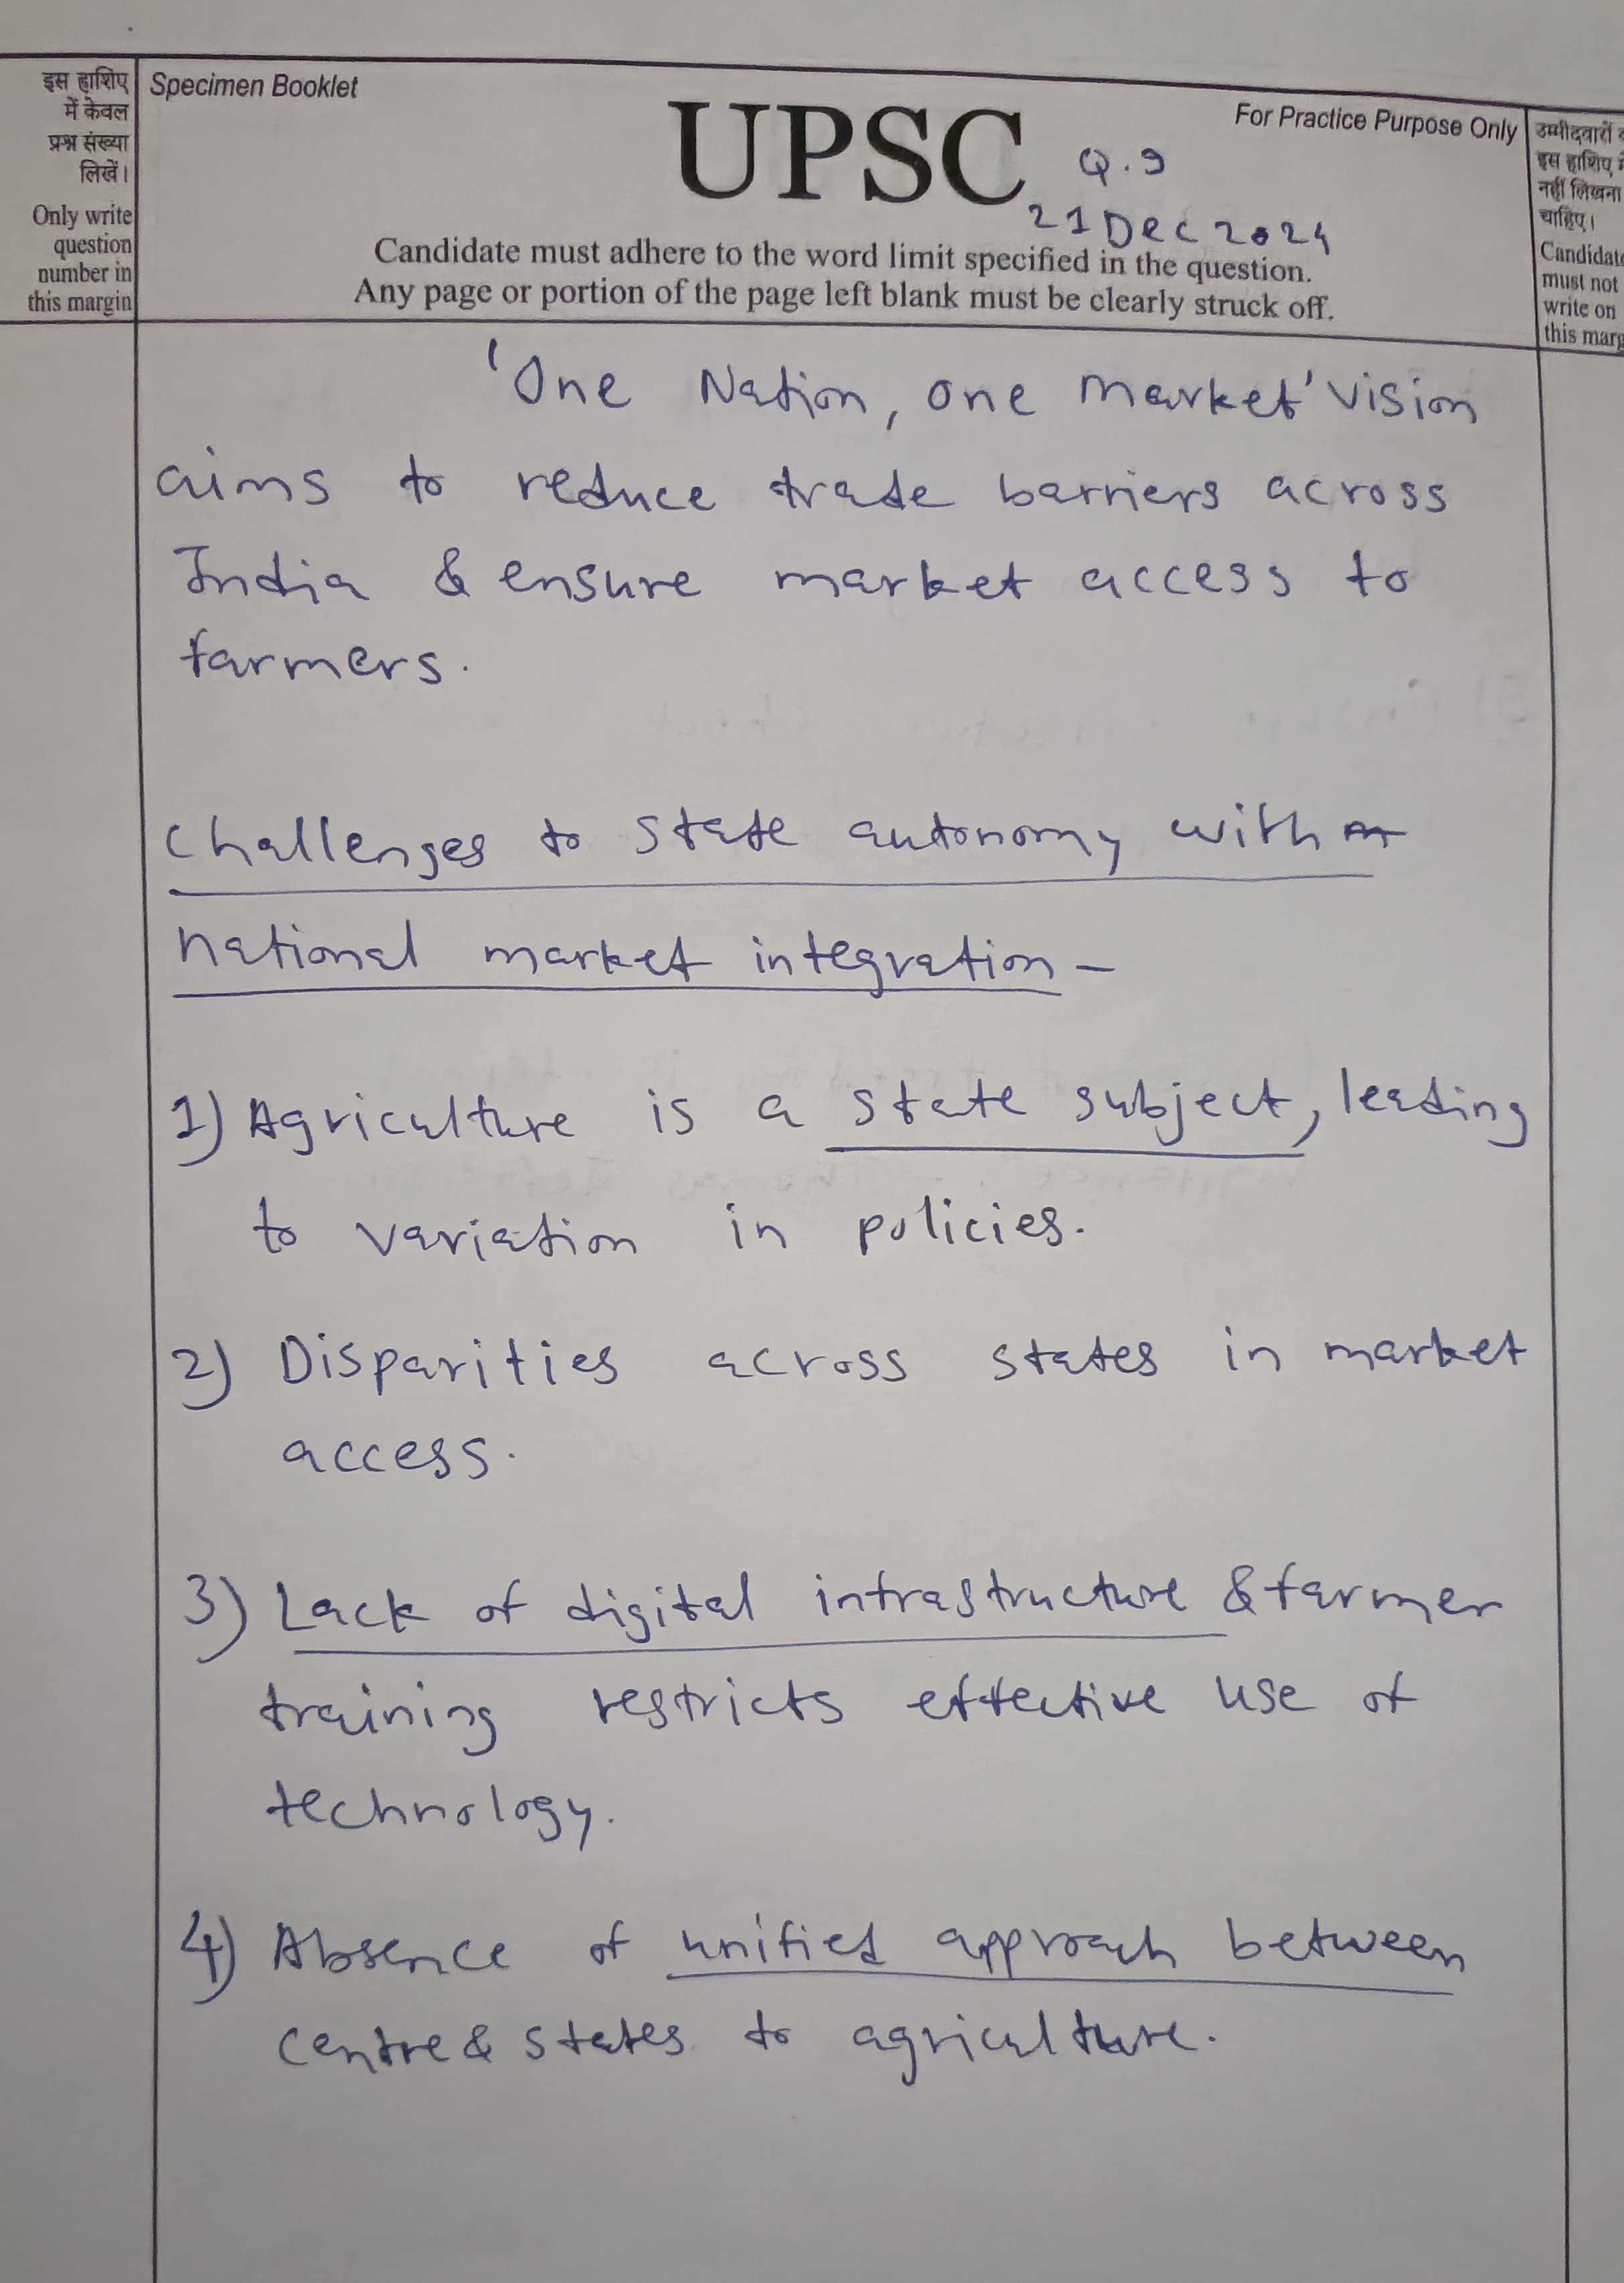 इस हाशिए
में केवल
प्रश्न संख्या
लिखें।
Only write
question
number in
this margin
Specimen Booklet
UPSC
For Practice Purpose Only
Q.9
21 Dec 2024
Candidate must adhere to the word limit specified in the question.
Any page or portion of the page left blank must be clearly struck off.
उम्मीदवारों
इस हाशिए
नहीं लिखना
चाहिए।
Candidate
must not
write on
this marg
'One Nation, one market' vision
aims to reduce trade barriers across
India & ensure market access to
farmers.
Challenges to state autonomy with
national market integration –
1) Agriculture is a state subject, leading
to variation in policies.
2) Disparities across states in market
access.
3) Lack of digital infrastructure & farmer
training restricts effective use of
technology.
4) Absence of unified approach between
centre & states to agriculture.